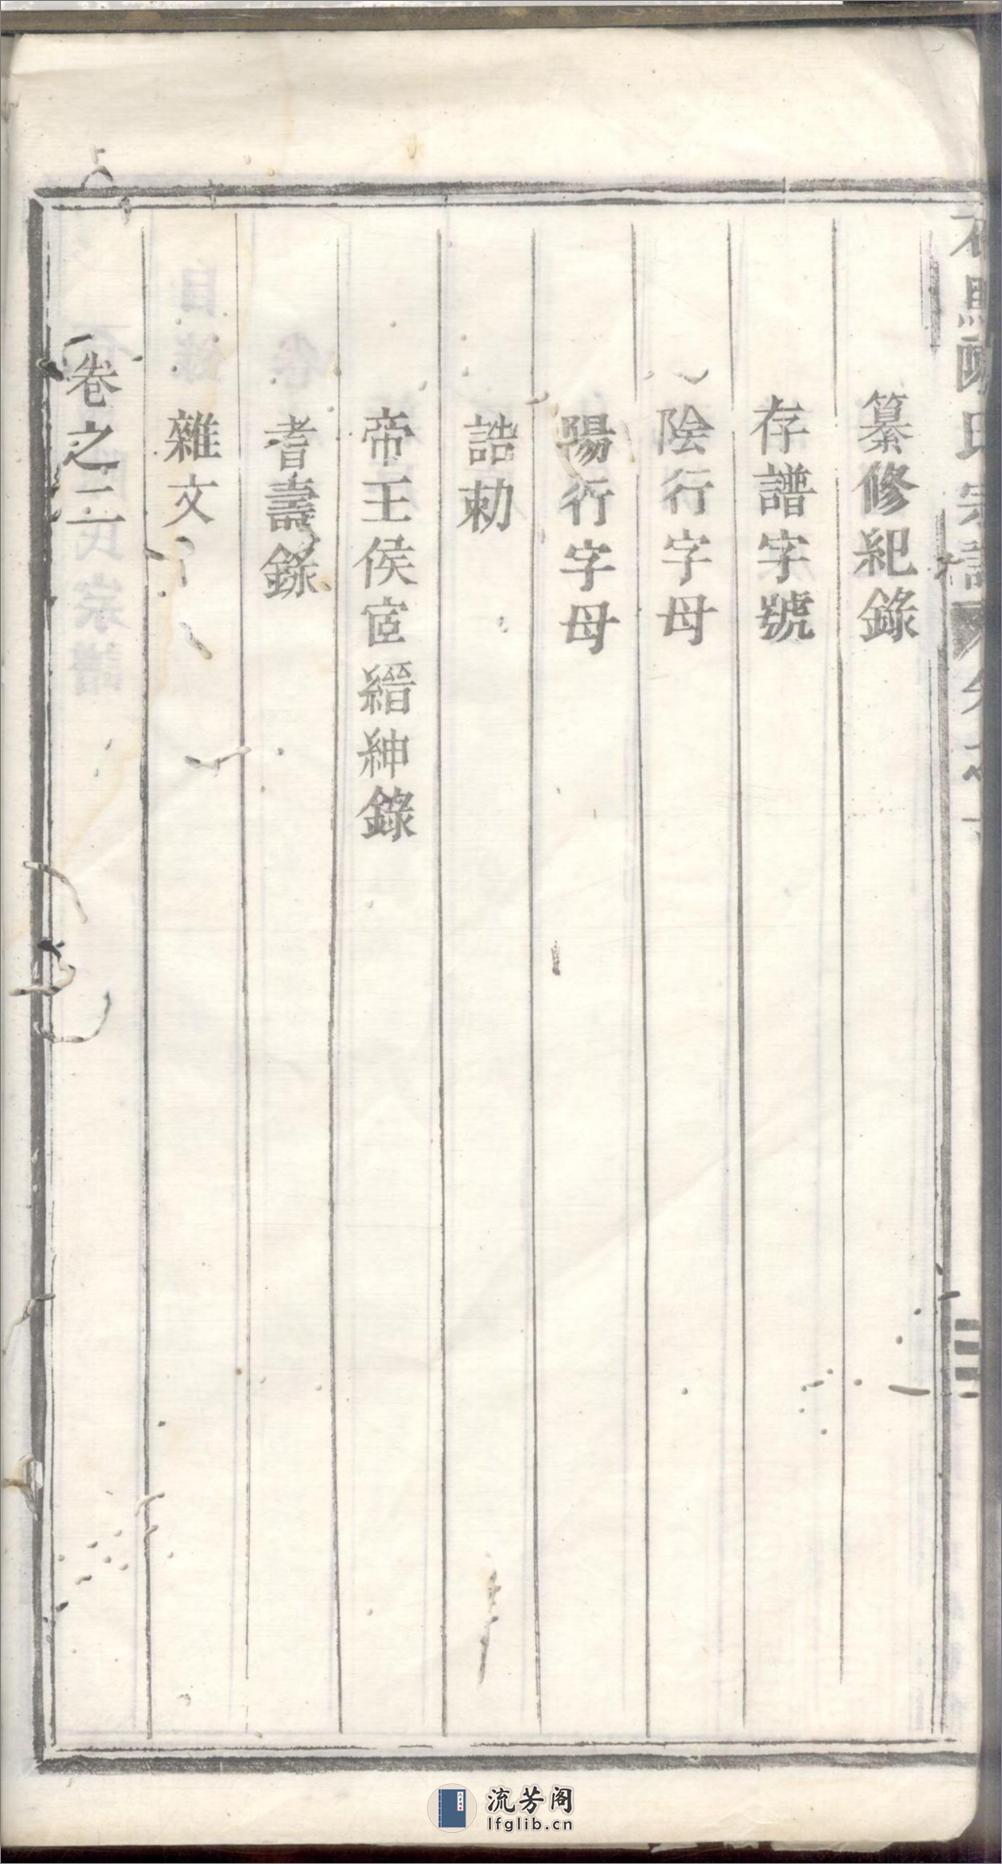 纂修紀錄
存譜字號
陰行字母
陽行字母
誥勅
帝王侯宦縉紳錄
耆壽錄
雜文
卷之二
流芳阁
lfglib.cn